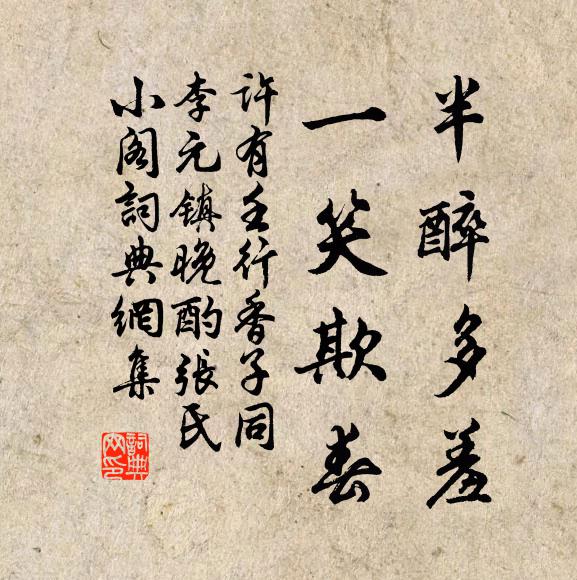 半醉多羞
一笑欺春
許有壬行香子同
李元鎮晚酌張氏
小阁詞典網集
詞典
网印